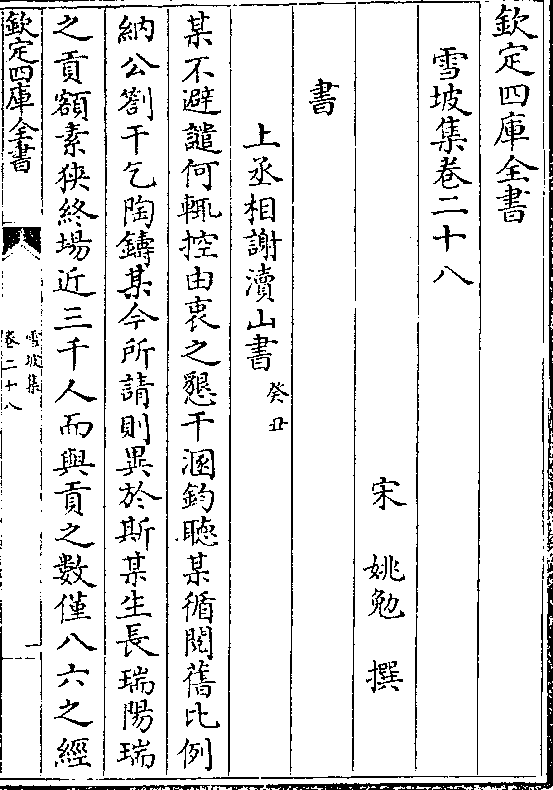 欽定四庫全書
雪坡集卷二十八
宋 姚勉 撰
書
上丞相謝瀆山書 癸丑
某不避譴何輒控由衷之懇干溷鈞聽某循閱舊比例
納公劄干乞陶鑄某今所請則異於斯某生長瑞陽瑞
之貢額素狹終場近三千人而與貢之數僅八六之經
欽定四庫全書
雪坡集
卷二十八
一